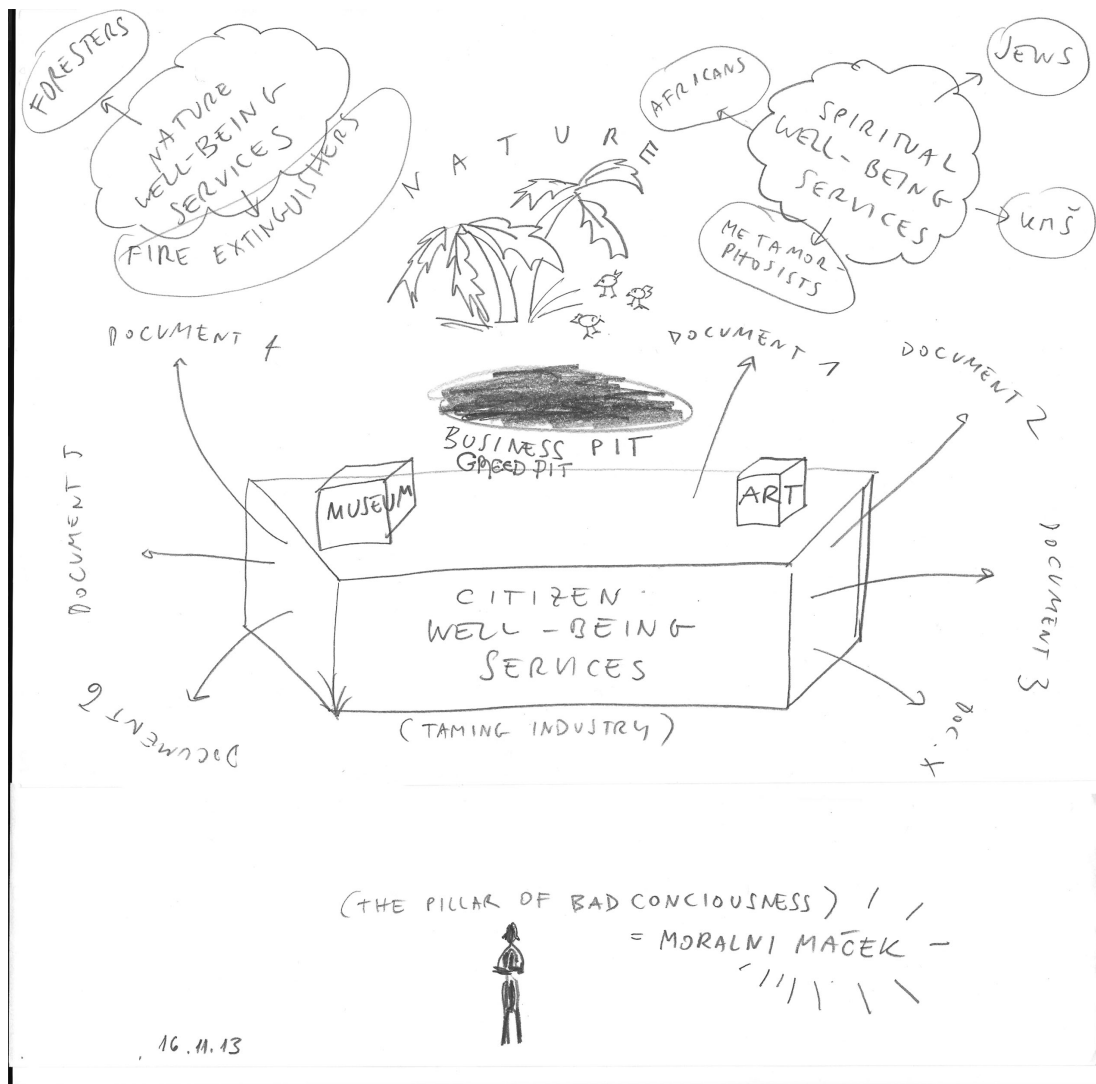 FORESTERS
NATURE
WELL-BEING
SERVICES
FIRE EXTINGUISHERS
NATURE
AFRICANS
SPIRITUAL
WELL-BEING
SERVICES
JEWS
METAMOR-
PHOSISTS
DOCUMENT 4
DOCUMENT 1
DOCUMENT 2
BUSINESS PIT
GREED PIT
MUSEUM
ART
DOCUMENT 5
DOCUMENT 3
CITIZEN
WELL-BEING
SERVICES
(TAMING INDUSTRY)
DOCUMENT 6
DOC. X
(THE PILLAR OF BAD CONCIOUSNESS)
= MORALNI MAČEK
16.11.13